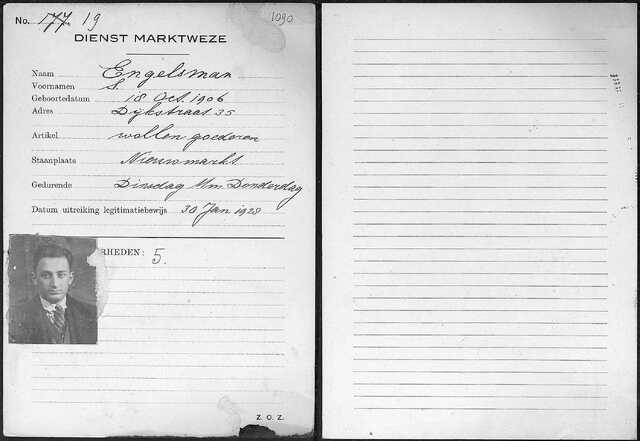 No. 177. 19
1090
DIENST MARKTWEZE
Naam Engelsman
Voornamen S.
Geboortedatum 18 Oct. 1906
Adres Dijkstraat 35
Artikel wollen goederen
Staanplaats Nieuwmarkt
Gedurende Dinsdag t/m Donderdag
Datum uitreiking legitimatiebewijs 30 Jan 1928
RHEDEN: 5.
Z. O. Z.